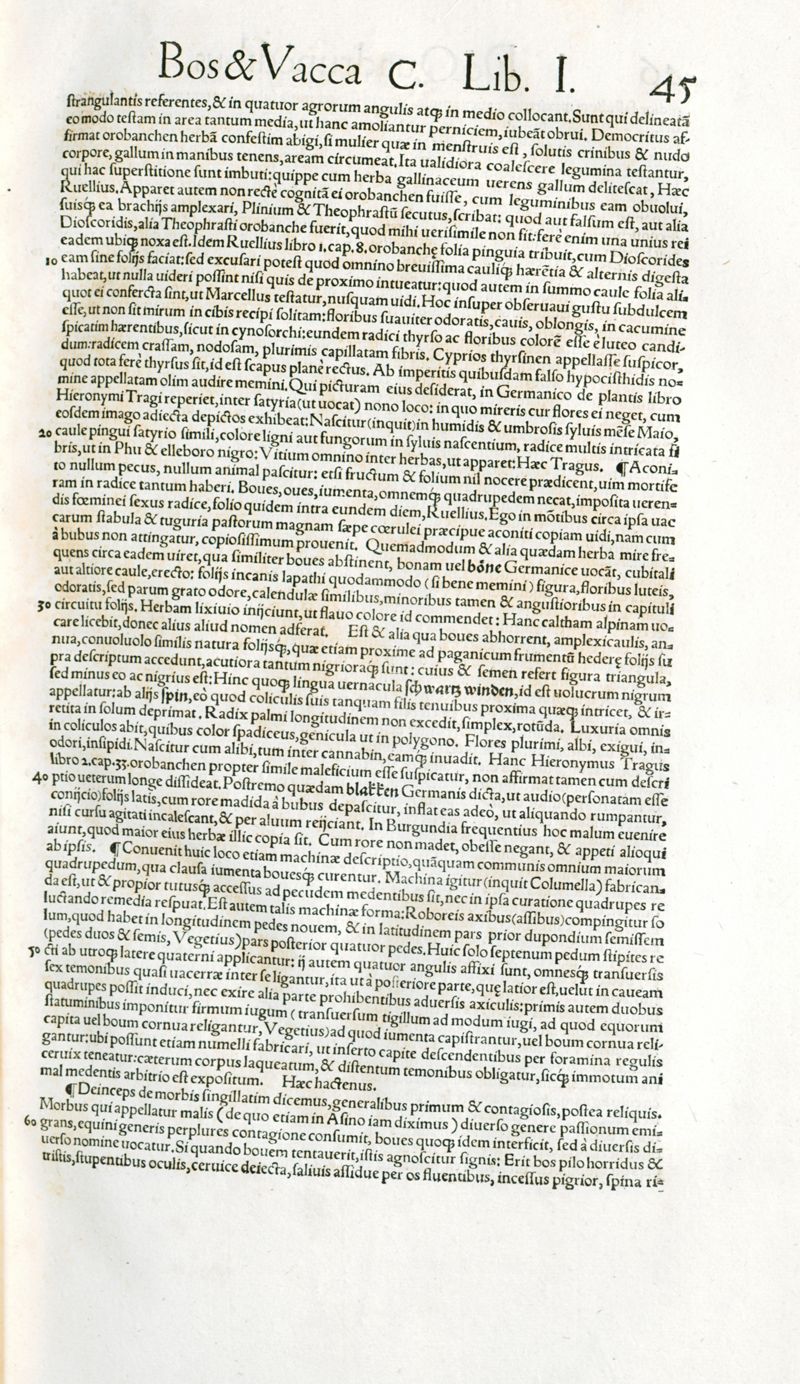 Bos & Vacca C. Lib. I. 45
ſtrangulantis referentes, & in quatuor agrorum angulis atq; in medio collocant. Sunt qui delineatã
eo modo teſtam in area tantum media, ut hanc amoliantur perniciem, iubeãt obrui. Democritus af-
firmat orobanchen herbã confeſtim abigi, ſi mulier quæ in menſtruis eſt, ſolutis crinibus & nudo
corpore, gallum in manibus tenens, aream circumeat. Ita ualidiora coaleſcere legumina teſtantur,
qui hac ſuperſtitione ſunt imbuti: quippe cum herba gallinaceum uerens gallum deliteſcat, Hæc
Ruellius. Apparet autem non rectè cognitã ei orobanchen fuiſſe, cum leguminibus eam obuolui,
ſuisq; ea brachijs amplexari, Plinium & Theophraſtũ ſecutus, ſcribat: quod aut falſum eſt, aut alia
Dioſcoridis, alia Theophraſti orobanche fuerit, quod mihi ueriſimile non fit: ferè enim una unius rei
eadem ubiq; noxa eſt. Idem Ruellius libro 1. cap. 8. orobanchę folia pinguia tribuit, cum Dioſcorides
10 eam ſine folijs faciat: ſed excuſari poteſt quod omnino breuiſſima cauliq; hærẽtia & alternis digeſta
habeat, ut nulla uideri poſſint niſi quis de proximo intueatur: quod autem in ſummo caule folia ali-
quot ei conferta ſint, ut Marcellus teſtatur, nuſquam uidi. Hoc inſuper obſeruaui guſtu ſubdulcem
eſſe, ut non ſit mirum in cibis recipi ſolitam: floribus ſuauiter odoratis, cauis, oblongis, in cacumine
ſpicatim hærentibus, ſicut in cynoſorchi: eundem radici thyrſo ac floribus colorẽ eſſe è luteo candi-
dum: radicem craſſam, nodoſam, plurimis capillatam fibris. Cyprios thyrſinen appellaſſe ſuſpicor,
quod tota ferè thyrſus ſit, id eſt ſcapus planè rectus. Ab imperitis quibuſdam falſo hypociſthidis no-
mine appellatam olim audire memini. Qui picturam eius deſiderat, in Germanico de plantis libro
Hieronymi Tragi reperiet, inter ſatyria (ut uocat) nono loco: in quo mireris cur flores ei neget, cum
eoſdem imago adiecta depictos exhibeat: Naſcitur (inquit) in humidis & umbroſis ſyluis mẽſe Maio,
20 caule pingui ſatyrio ſimili, colore ligni aut fungorum in ſyluis naſcentium, radice multis intricata fi
bris, ut in Phu & elleboro nigro: Vitium omnino inter herbas, ut apparet: Hæc Tragus. ¶ Aconi-
to nullum pecus, nullum animal paſcitur: etſi fructum & folium nil nocere prædicent, uim mortife
ram in radice tantum haberi. Boues, oues, iumenta, omnemq; quadrupedem necat, impoſita ueren-
dis fœminei ſexus radice, folio quidem intra eundem diem, Ruellius. Ego in mõtibus circa ipſa uac
carum ſtabula & tuguria paſtorum magnam ſæpe cœrulei præcipue aconiti copiam uidi, nam cum
à bubus non attingatur, copioſiſſimum prouenit. Quemadmodum & alia quædam herba mire fre-
quens circa eadem uiret, qua ſimiliter boues abſtinent, bonam uel bône Germanice uocãt, cubitali
aut altiore caule, erecto: folijs incanis lapathi quodammodo (ſi bene memini) figura, floribus luteis,
odoratis, ſed parum grato odore, calendulæ ſimilibus, minoribus tamen & anguſtioribus in capituli
30 circuitu folijs. Herbam lixiuio inijciunt, ut flauo colore id commendet: Hanc caltham alpinam uo-
care licebit, donec alius aliud nomen adferat. Eſt & alia qua boues abhorrent, amplexicaulis, an-
nua, conuoluolo ſimilis natura folijsq;, quæ etiam proxime ad paganicum frumentũ hederę folijs ſu
pra deſcriptum accedunt, acutiora tantum nigrioraq; ſunt: cuius & ſemen refert figura triangula,
ſed minus eo ac nigrius eſt: Hinc quoq; lingua uernacula ſchwartz winden, id eſt uolucrum nigrum
appellatur: ab alijs ſpin, eò quod coliculis ſuis tanquam filis tenuibus proxima quæq; intricet, & ir-
retita in ſolum deprimat. Radix palmi longitudinem non excedit, ſimplex, rotũda. Luxuria omnis
in coliculos abit, quibus color ſpadiceus, genicula ut in polygono. Flores plurimi, albi, exigui, in-
odori, inſipidi. Naſcitur cum alibi, tum inter cannabin, eamq; inuadit. Hanc Hieronymus Tragus
libro 2. cap. 33. orobanchen propter ſimile maleficium eſſe ſuſpicatur, non affirmat tamen cum deſcri
40 ptio ueterum longe diſſideat. Poſtremo quædam blatten Germanis dicta, ut audio (perſonatam eſſe
conijcio) folijs latis, cum rore madida à bubus depaſcitur, inflat eas adeò, ut aliquando rumpantur,
niſi curſu agitati incaleſcant, & per aluum reijciant. In Burgundia frequentius hoc malum euenire
aiunt, quod maior eius herbæ illic copia ſit. Cum rore non madet, obeſſe negant, & appeti alioqui
ab ipſis. ¶ Conuenit huic loco etiam machinæ deſcriptio, quãquam communis omnium maiorum
quadrupedum, qua clauſa iumenta bouesq; curentur. Machina igitur (inquit Columella) fabrican-
da eſt, ut & propior tutusq; acceſſus ad pecudem medentibus ſit, nec in ipſa curatione quadrupes re
luctando remedia reſpuat. Eſt autem talis machinæ forma: Roboreis axibus (aſſibus) compingitur ſo
lum, quod habet in longitudinem pedes nouem, & in latitudinem pars prior dupondium ſemiſſem
(pedes duos & ſemis, Vegetius) pars poſterior quatuor pedes. Huic ſolo ſeptenum pedum ſtipites re
50 cti ab utroq; latere quaterni applicantur: ij autem quatuor angulis affixi ſunt, omnesq; tranſuerſis
ſex temonibus quaſi uacerræ inter ſe ligantur, ita ut à poſteriore parte, quę latior eſt, uelut in caueam
quadrupes poſſit induci, nec exire alia parte prohibentibus aduerſis axiculis: primis autem duobus
ſtatuminibus imponitur firmum iugum (tranſuerſum tigillum ad modum iugi, ad quod equorum
capita uel boum cornua religantur, Vegetius) ad quod iumenta capiſtrantur, uel boum cornua reli-
gantur: ubi poſſunt etiam numelli fabricari, ut inſerto capite deſcendentibus per foramina regulis
ceruix teneatur: cæterum corpus laqueatum, & diſtentum temonibus obligatur, ſicq; immotum ani
mal medentis arbitrio eſt expoſitum. Hæc hactenus.
¶ Deinceps de morbis ſingillatim dicemus, generalibus primum & contagioſis, poſtea reliquis.
Morbus qui appellatur malis (de quo etiam in Aſino iam diximus) diuerſo genere paſſionum emi-
60 grans, equini generis perplures contagione conſumit, boues quoq; idem interficit, ſed à diuerſis di-
uerſo nomine uocatur. Si quando bouem tentauerit, iſtis agnoſcitur ſignis: Erit bos pilo horridus &
triſtis, ſtupentibus oculis, ceruice deiecta, ſaliuis aſſidue per os fluentibus, inceſſus pigrior, ſpina ri-